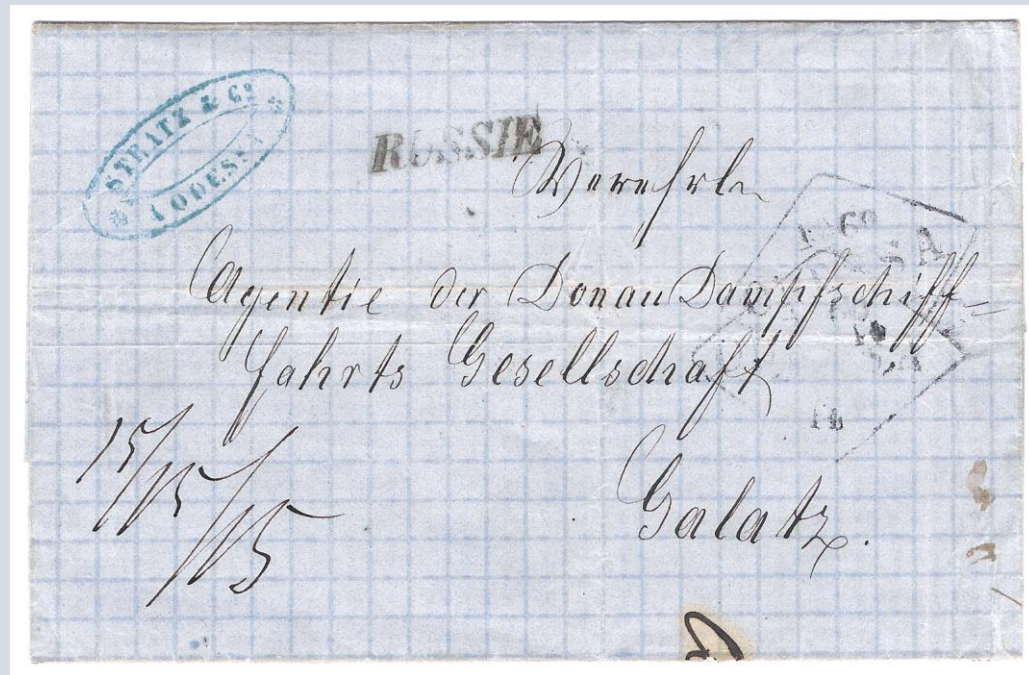 STRATZ & Co
A ODESSA
RUSSIE
Agentie der Donau Dampfschiff-
fahrts Gesellschaft
Galatz.
15/15/15